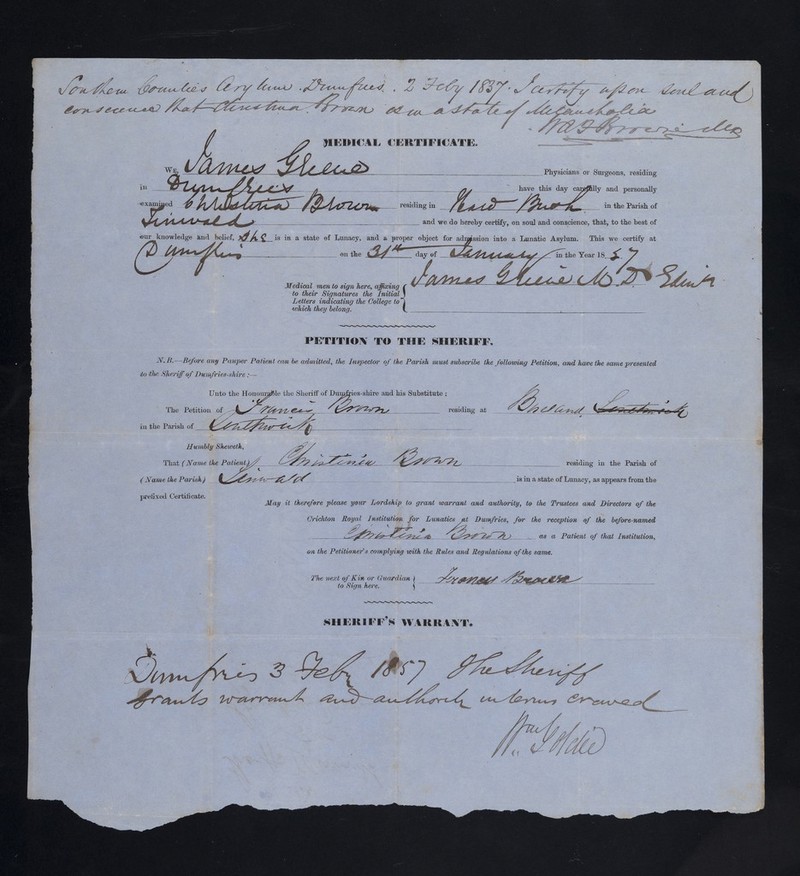 Southern Counties Asylum. Dumfries. 2 Feby 1857. I certify upon soul and
conscience that Christina Brown is in a state of Melancholia
W A F Browne MD
MEDICAL CERTIFICATE.
We, James Greene Physicians or Surgeons, residing
in Dumfries have this day carefully and personally
examined Christina Brown residing in Bush in the Parish of
Tinwald and we do hereby certify, on soul and conscience, that, to the best of
our knowledge and belief, She is in a state of Lunacy, and a proper object for admission into a Lunatic Asylum. This we certify at
Dumfries on the 31st day of January in the Year 1857
Medical men to sign here, affixing
to their Signatures the Initial
Letters indicating the College to
which they belong.
James Greene M.D. Edinr
PETITION TO THE SHERIFF.
N.B.—Before any Pauper Patient can be admitted, the Inspector of the Parish must subscribe the following Petition, and have the same presented
to the Sheriff of Dumfries-shire:—
Unto the Honourable the Sheriff of Dumfries-shire and his Substitute;
The Petition of Francis Brown residing at
in the Parish of
Humbly Sheweth,
That (Name the Patient) Christina Brown residing in the Parish of
(Name the Parish) Tinwald is in a state of Lunacy, as appears from the
prefixed Certificate.
May it therefore please your Lordship to grant warrant and authority, to the Trustees and Directors of the
Crichton Royal Institution for Lunatics at Dumfries, for the reception of the before-named
Christina Brown as a Patient of that Institution,
on the Petitioner's complying with the Rules and Regulations of the same.
The next of Kin or Guardian
to Sign here.
Francis Brown
SHERIFF'S WARRANT.
Dumfries 3 Feby 1857 The Sheriff
Grants warrant and authority in terms craved
Wm Goldie